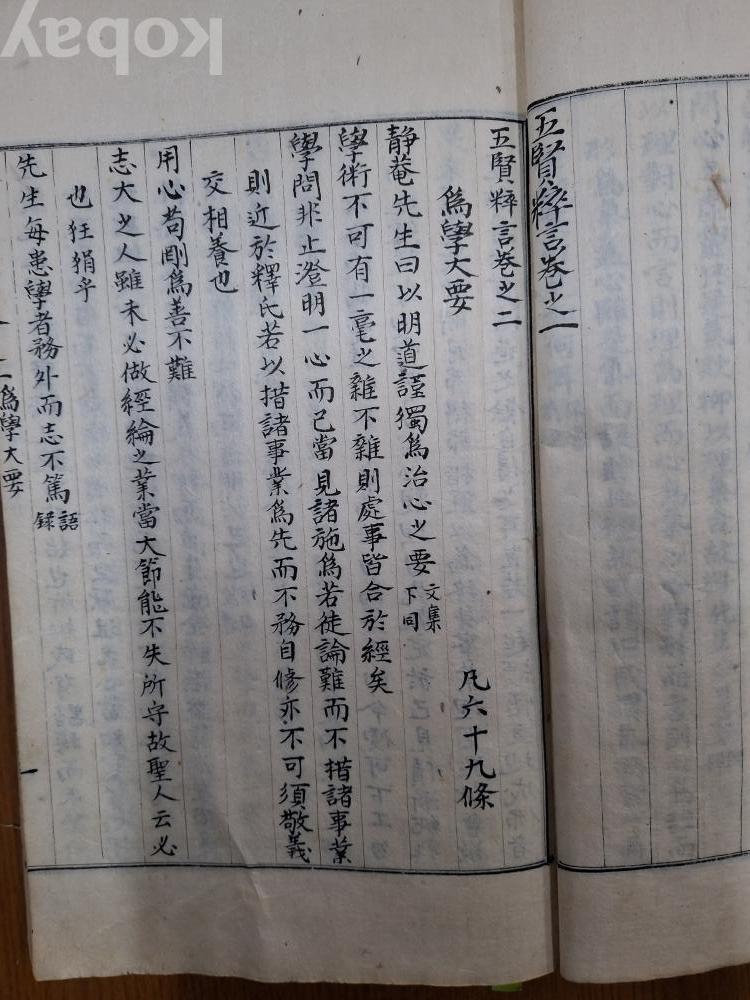 kobay
五賢粹言卷之一
五賢粹言卷之二
爲學大要 凡六十九條
静菴先生曰以明道謹獨爲治心之要 文集下同
學術不可有一毫之雜不雜則處事皆合於經矣
學問非止澄明一心而已當見諸施爲若徒論難而不措諸事業
則近於釋氏若以措諸事業爲先而不務自修亦不可須敬義
交相養也
用心苟剛爲善不難
志大之人雖未必做經綸之業當大節能不失所守故聖人云必
也狂狷乎
先生每患學者務外而志不篤 語錄
二 爲學大要 一